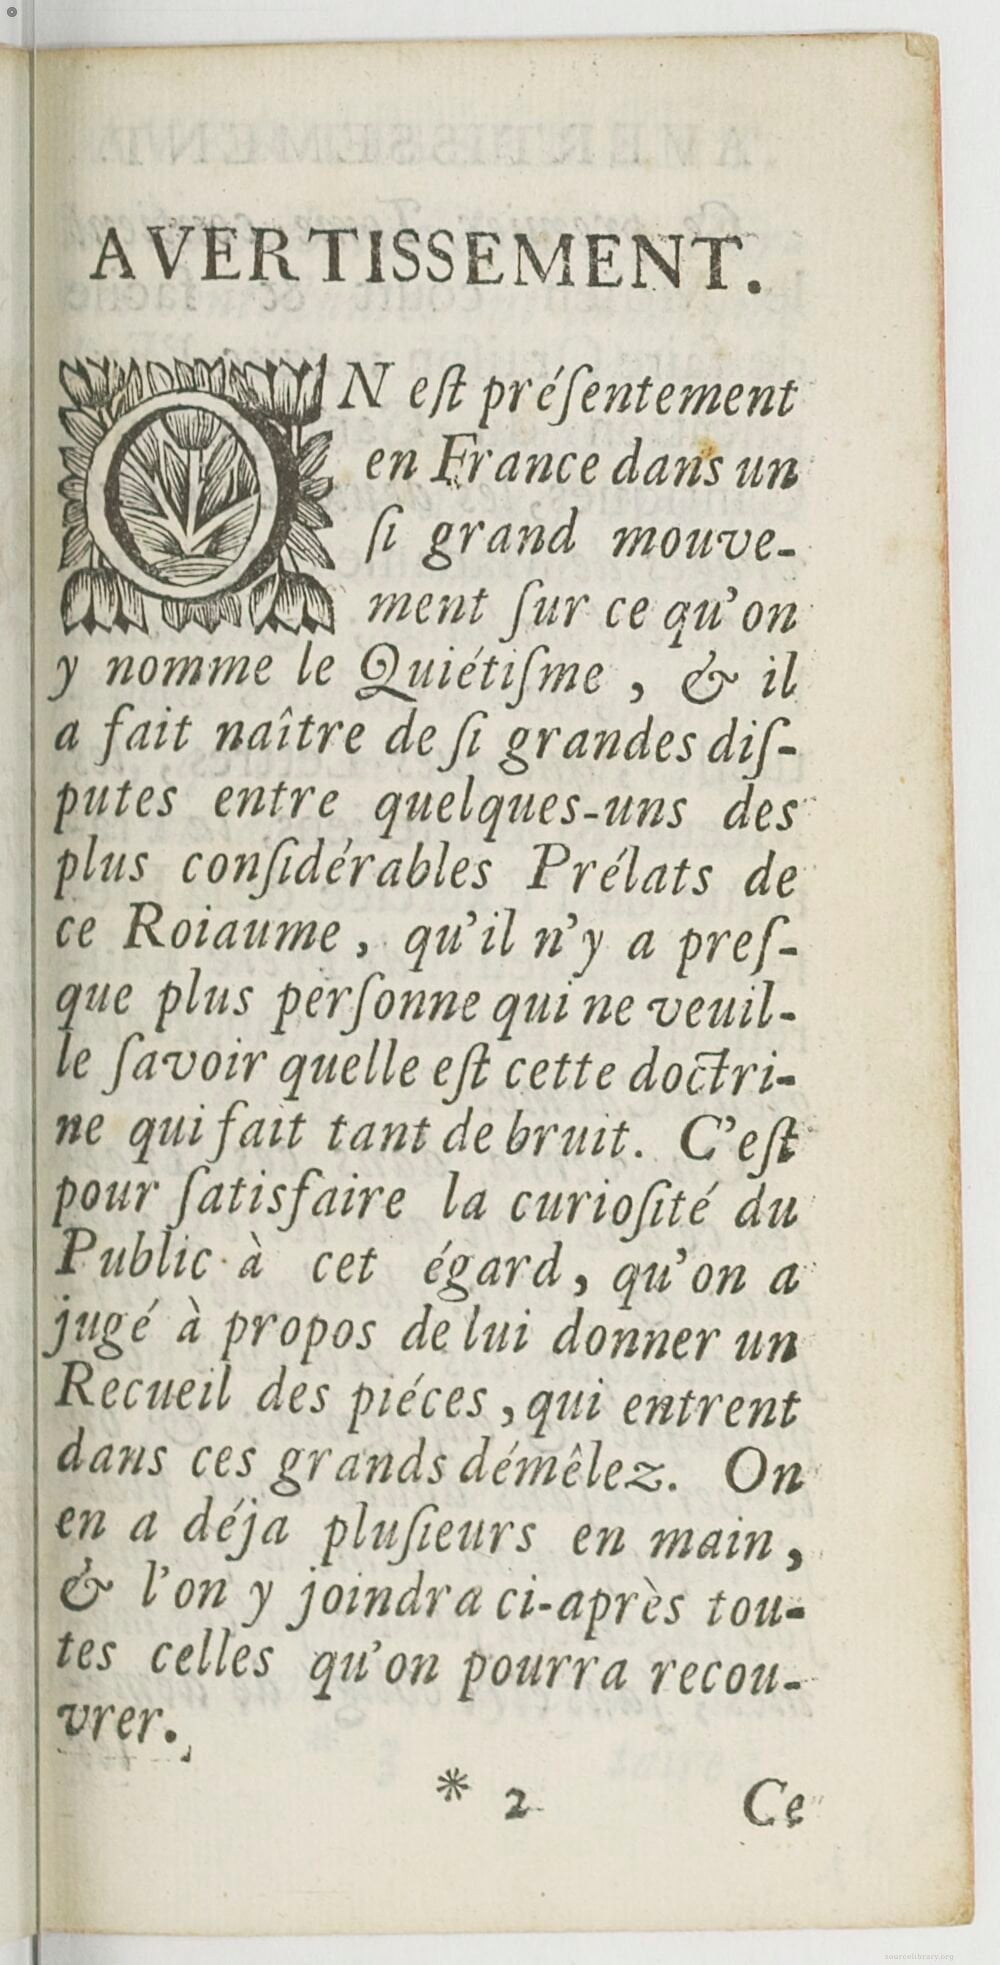 AVERTISSEMENT.
ON eſt préſentement
en France dans un
ſi grand mouve-
ment ſur ce qu'on
y nomme le Quiétiſme, & il
a fait naître de ſi grandes diſ-
putes entre quelques-uns des
plus conſidérables Prélats de
ce Roiaume, qu'il n'y a preſ-
que plus perſonne qui ne veuil-
le ſavoir quelle eſt cette doctri-
ne qui fait tant de bruit. C'eſt
pour ſatisfaire la curioſité du
Public à cet égard, qu'on a
jugé à propos de lui donner un
Recueil des piéces, qui entrent
dans ces grands démêlez. On
en a déja pluſieurs en main,
& l'on y joindra ci-après tou-
tes celles qu'on pourra recou-
vrer.
* 2 Ce
sourcelibrary.org